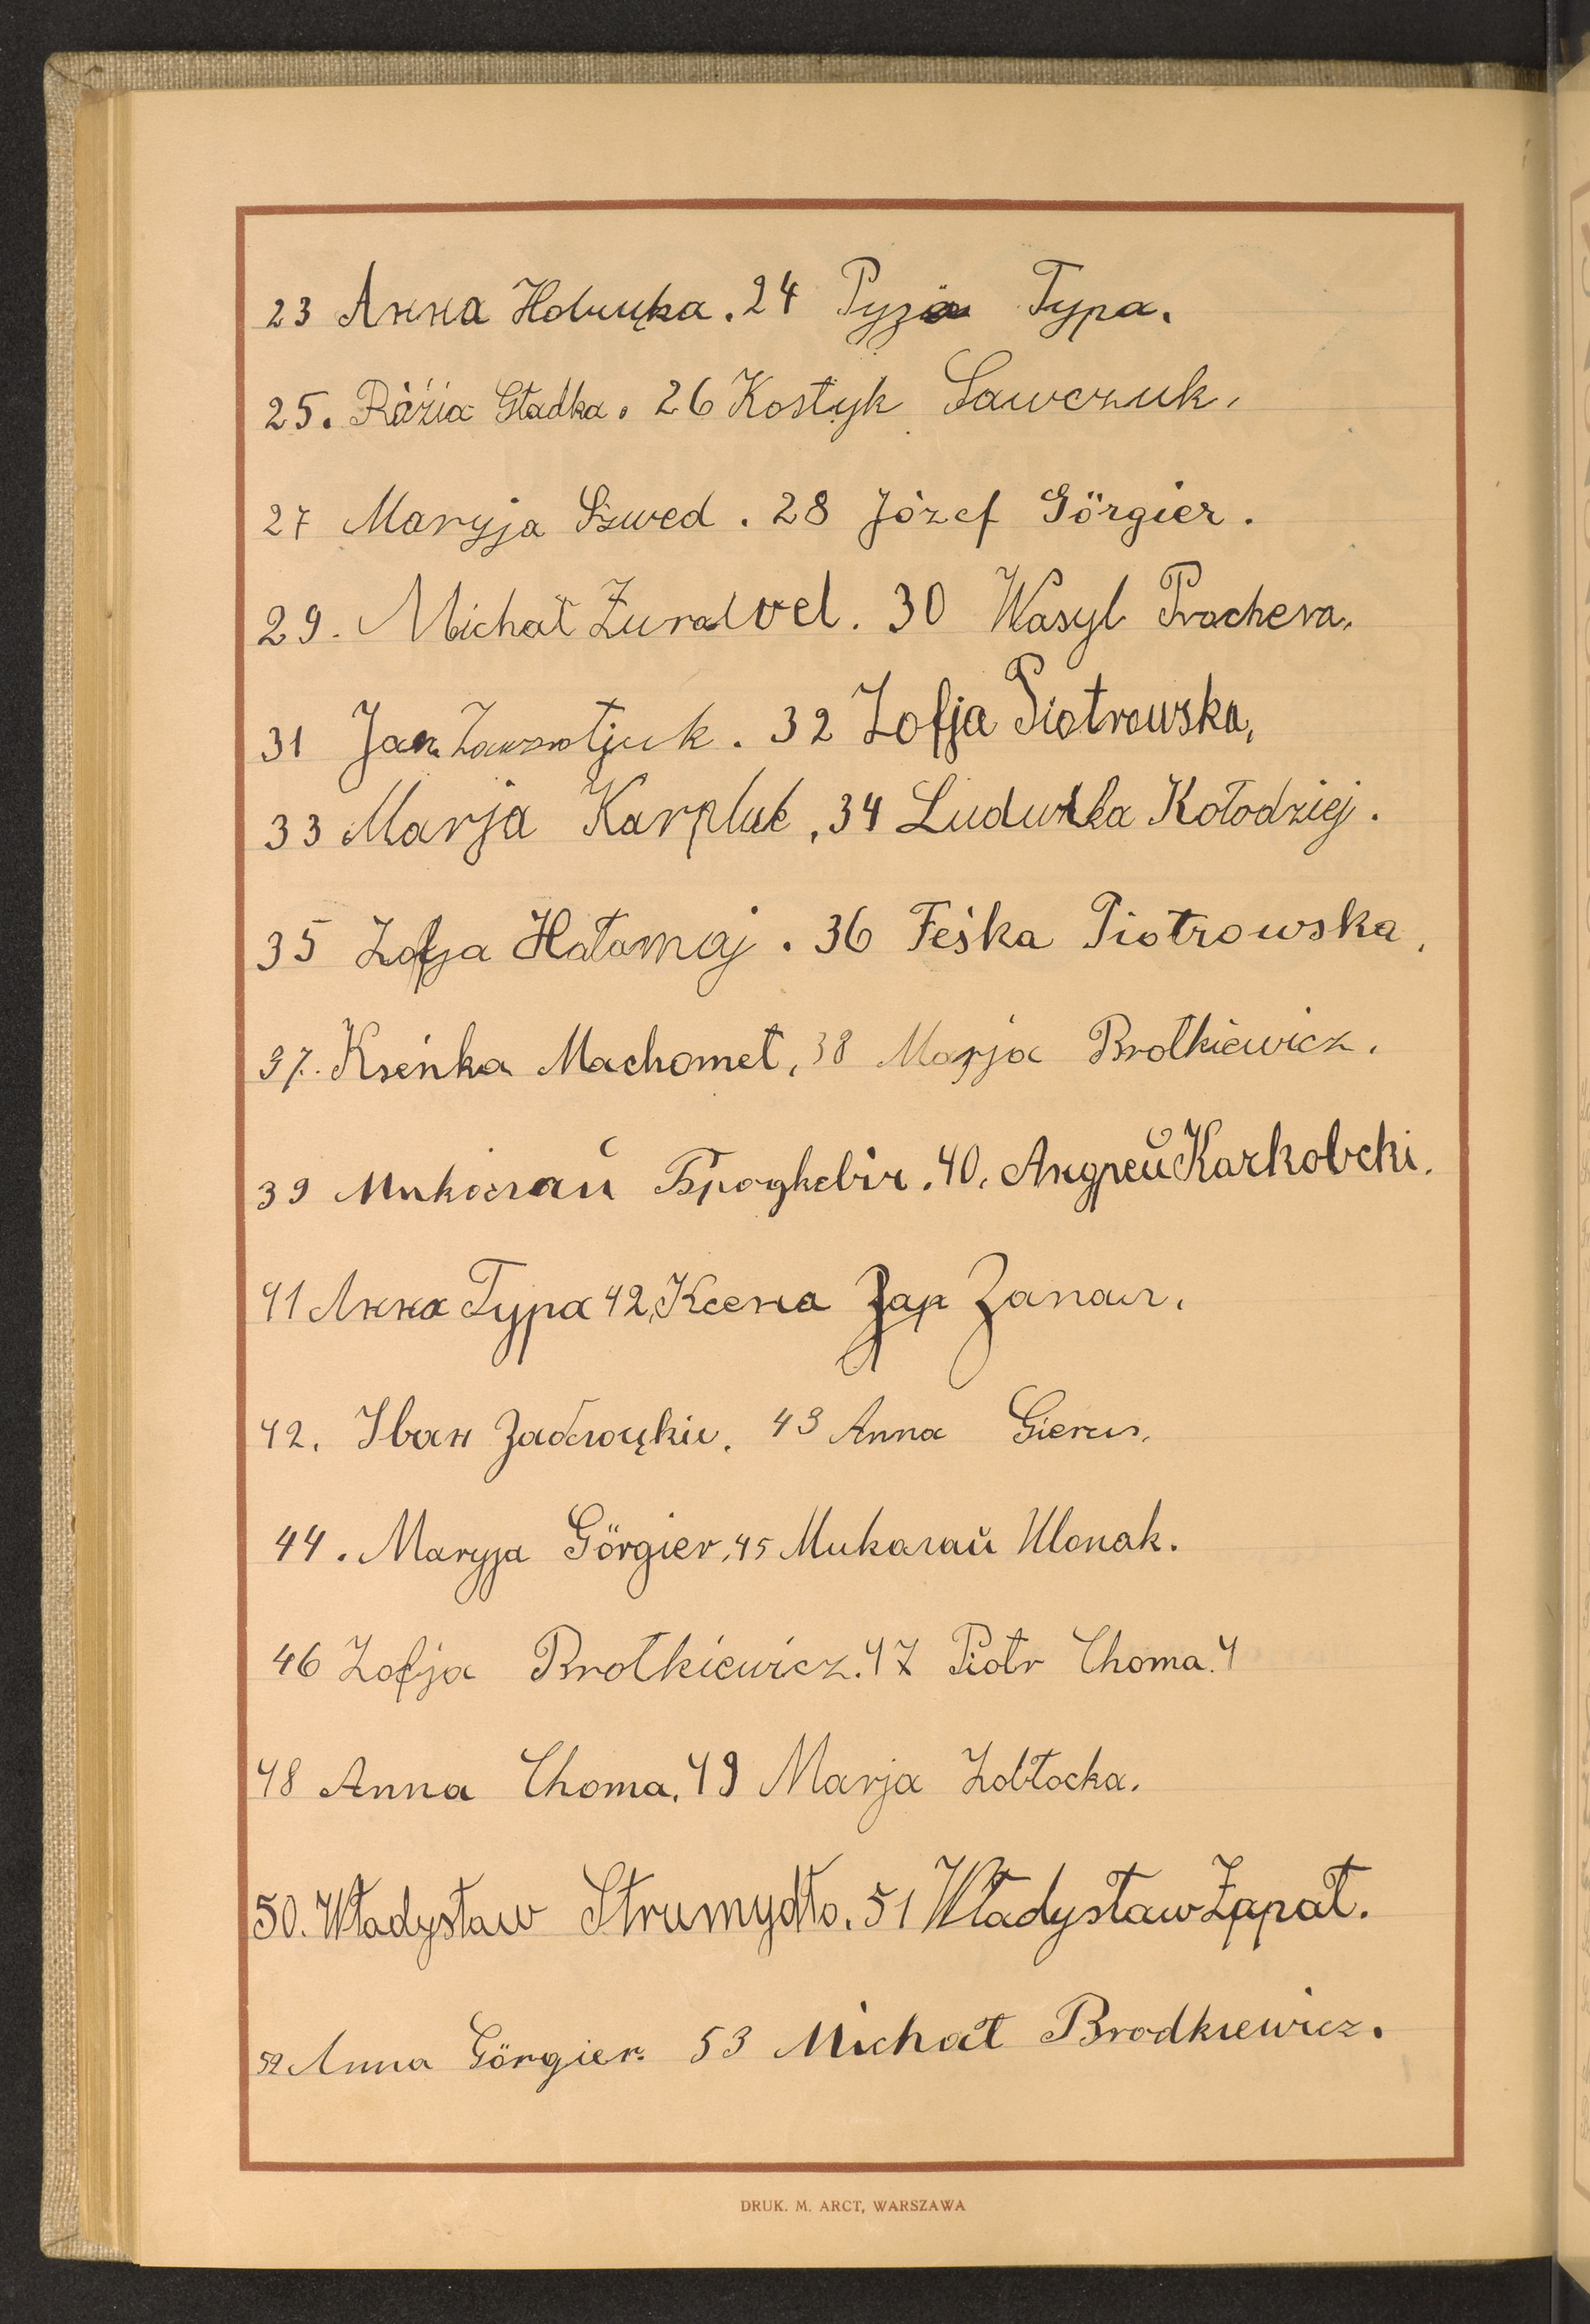 23 Анна Новицка. 24 Рузя Тура.
25. Rózia Gładka. 26 Kostyk Sawczuk.
27 Maryja Szwed. 28 Józef Görgier.
29. Michał Żurawel. 30 Wasyl Prochera.
31 Jan 32 Zofja Piotrowska,
33 Marja Karpluk, 34 Ludwika Kołodziej.
35 Zofja Hałamaj. 36 Feśka Piotrowska,
37. Kseńka Machomet, 38 Marja Brotkiewicz.
39 Микола́й Бродкевіч. 40. Андрей Karkowcki.
41 Анна Тура 42, Ксеня Зап Запал.
42. Іван Заблоцкій. 43 Anna Gierus.
44. Maryja Görgier, 45 Миколай
46 Zofja Brotkiewicz. 47 Piotr Choma. 4
48 Anna Choma, 49 Marja Zobłocka.
50. Władysław Strumydło. 51 Władysław Zapał.
52 Anna Görgier. 53 Michał Brodkiewicz.
DRUK. M. ARCT, WARSZAWA